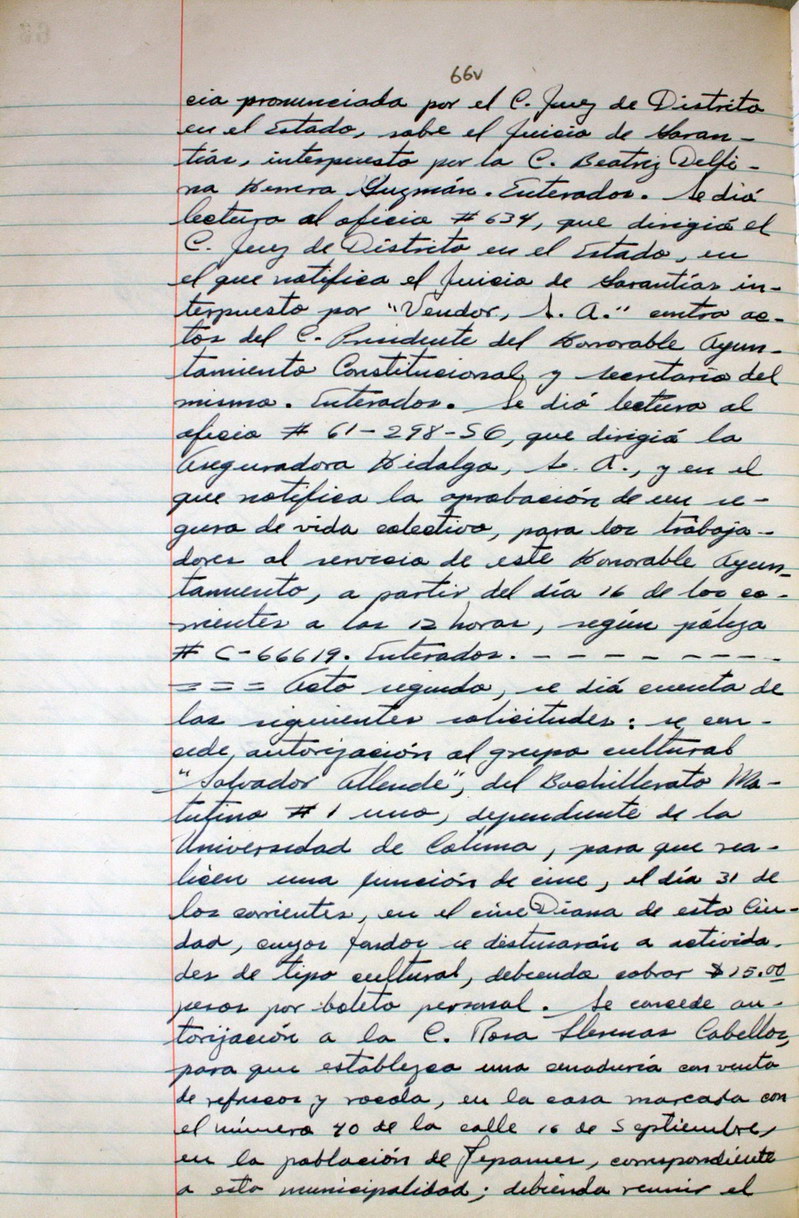 66v
cia pronunciada por el C. Juez de Distrito
en el Estado, sobe el Juicio de Garan-
tías, interpuesto por la C. Beatriz Delfi-
na Herrera Guzmán. Enterados. Se dió
lectura al oficio # 634, que dirigió el
C. Juez de Distrito en el Estado, en
el que notifica el Juicio de Garantías in-
terpuesto por "Vendor, S. A." contra ac-
tos del C. Presidente del Honorable Ayun-
tamiento Constitucional y Secretario del
mismo. Enterados. Se dió lectura al
oficio # 61-298-56, que dirigió la
Aseguradora Hidalgo, S. A., y en el
que notifica la aprobación de un se-
guro de vida colectivo, para los trabaja-
dores al servicio de este Honorable Ayun-
tamiento, a partir del día 16 de los co-
rrientes a las 12 horas, según póliza
# C-66619. Enterados. - - - - - - - -
= = = Acto seguido, se dió cuenta de
las siguientes solicitudes: se con-
cede autorización al grupo cultural
"Salvador Allende", del Bachillerato Ma-
tutino # 1 uno, dependiente de la
Universidad de Colima, para que rea-
licen una función de cine, el día 31 de
los corrientes, en el cine Diana de esta Ciu-
dad, cuyos fondos se destinarán a activida-
des de tipo cultural, debiendo cobrar $15.00
pesos por boleto personal. Se concede au-
torización a la C. Rosa Llerenas Cabellos,
para que establezca una cenaduría con venta
de refrescos y rocola, en la casa marcada con
el número 40 de la calle 16 de Septiembre,
en la población de Tepames, correspondiente
a esta municipalidad; debiendo reunir el